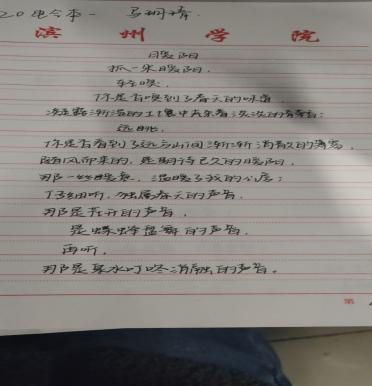 20电会本一 马明清.
滨州学院
暖阳
抓一米暖阳.
轻嗅.
你是否嗅到了春天的味道
淡
远眺.
你是否看到了远方山间渐渐消散的薄雾
随风而来的,是期待已久的暖阳.
那一丝暖意.温暖了我的心房;
仔细听,独属春天的声音.
那是花开的声音,
是蝶蜂盘舞的声音.
再听.
那是泉水叮咚消融的声音。
第